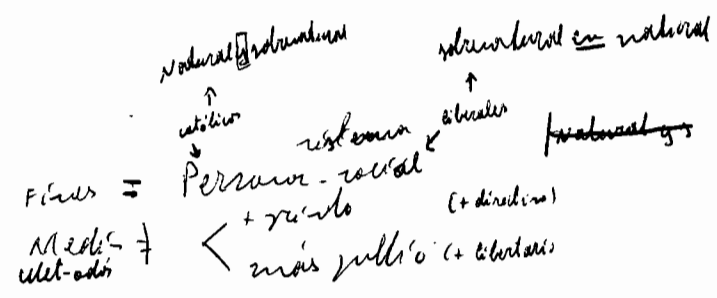 natural y sobrenatural
sobrenatural en natural
católicos
liberales
sistema
natural y s
Fines = Persona - social
+
(+ directivo)
Medi- ≠ < más público (+ libertario)